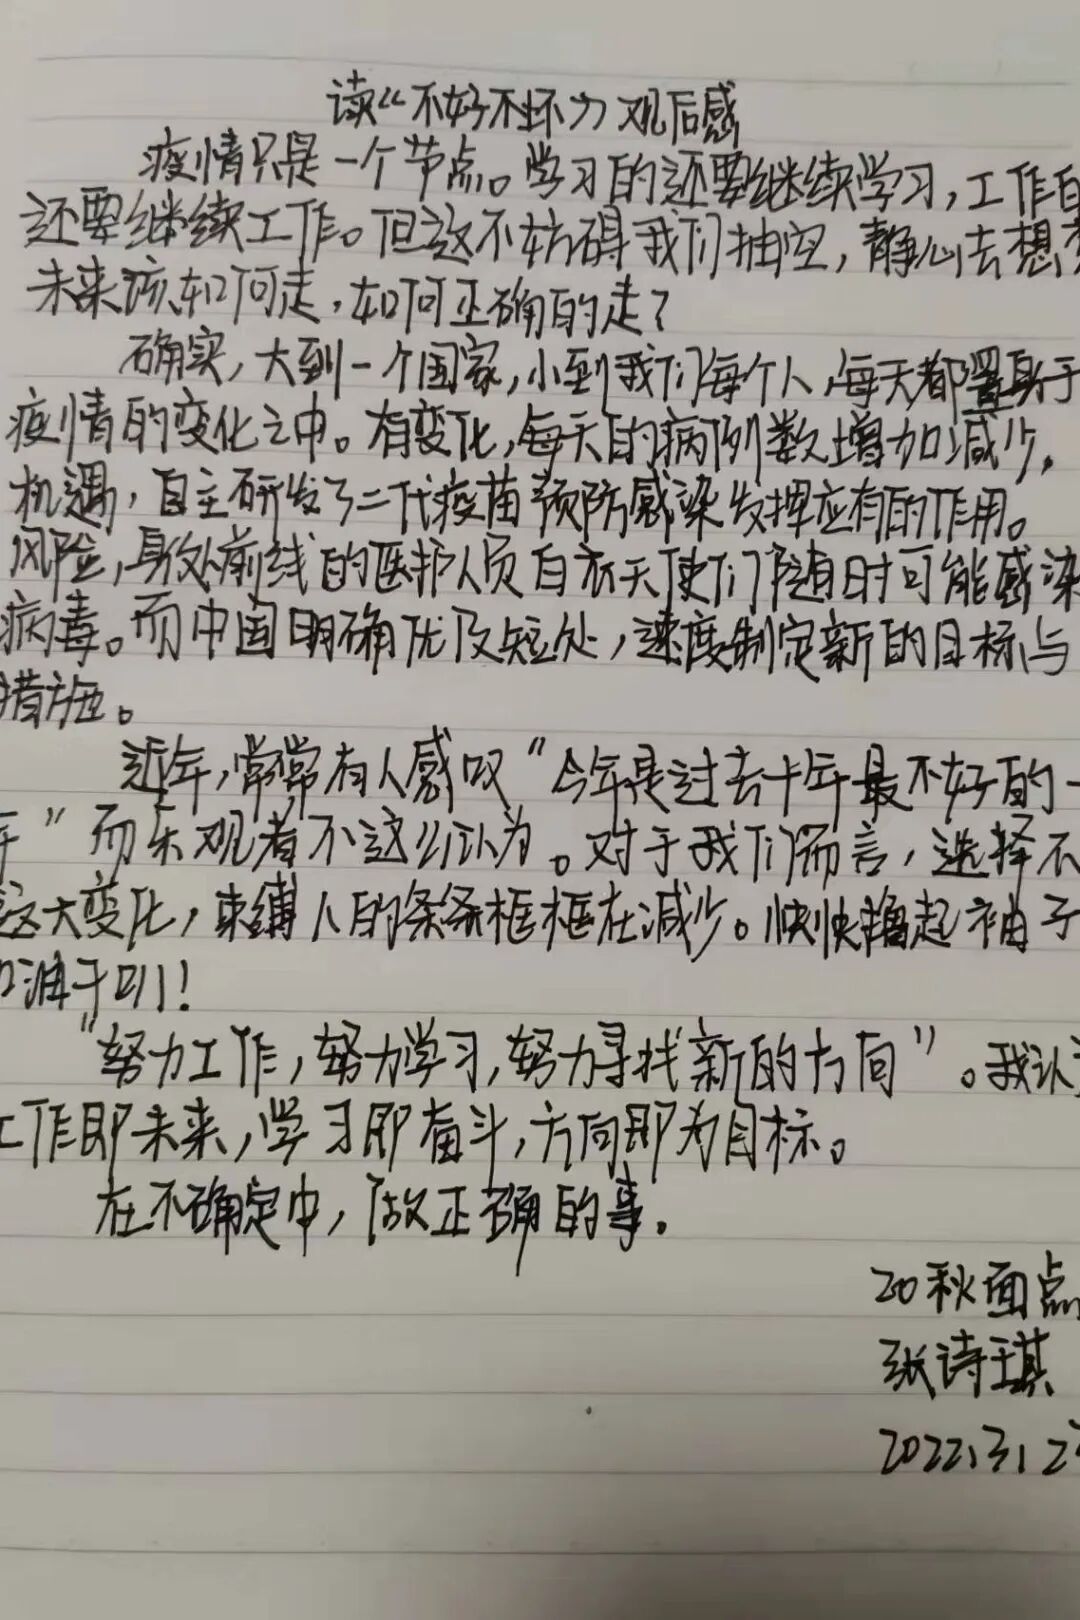 读《不好不坏》观后感
疫情只是一个节点。学习的还要继续学习,工作的
还要继续工作。但这不妨碍我们抽空,静心去想
未来该如何走,如何正确的走?
确实,大到一个国家,小到我们每个人,每天都置身于
疫情的变化之中。有变化,每天的病例数增加减少,
机遇,自主研发了二代疫苗预防感染发挥应有的作用。
风险,身处前线的医护人员白衣天使们随时可能感染
病毒。而中国明确优及短处,速度制定新的目标与
措施。
近年,常常有人感叹"今年是过去十年最不好的一
年"而乐观者不这么认为。对于我们而言,选择不
这大变化,束缚人的条条框框在减少。快快撸起袖子
油干叭!
"努力工作,努力学习,努力寻找新的方向"。我认
工作即未来,学习即奋斗,方向即为目标。
在不确定中,做正确的事.
20秋面点
张诗琪
2022.3.2